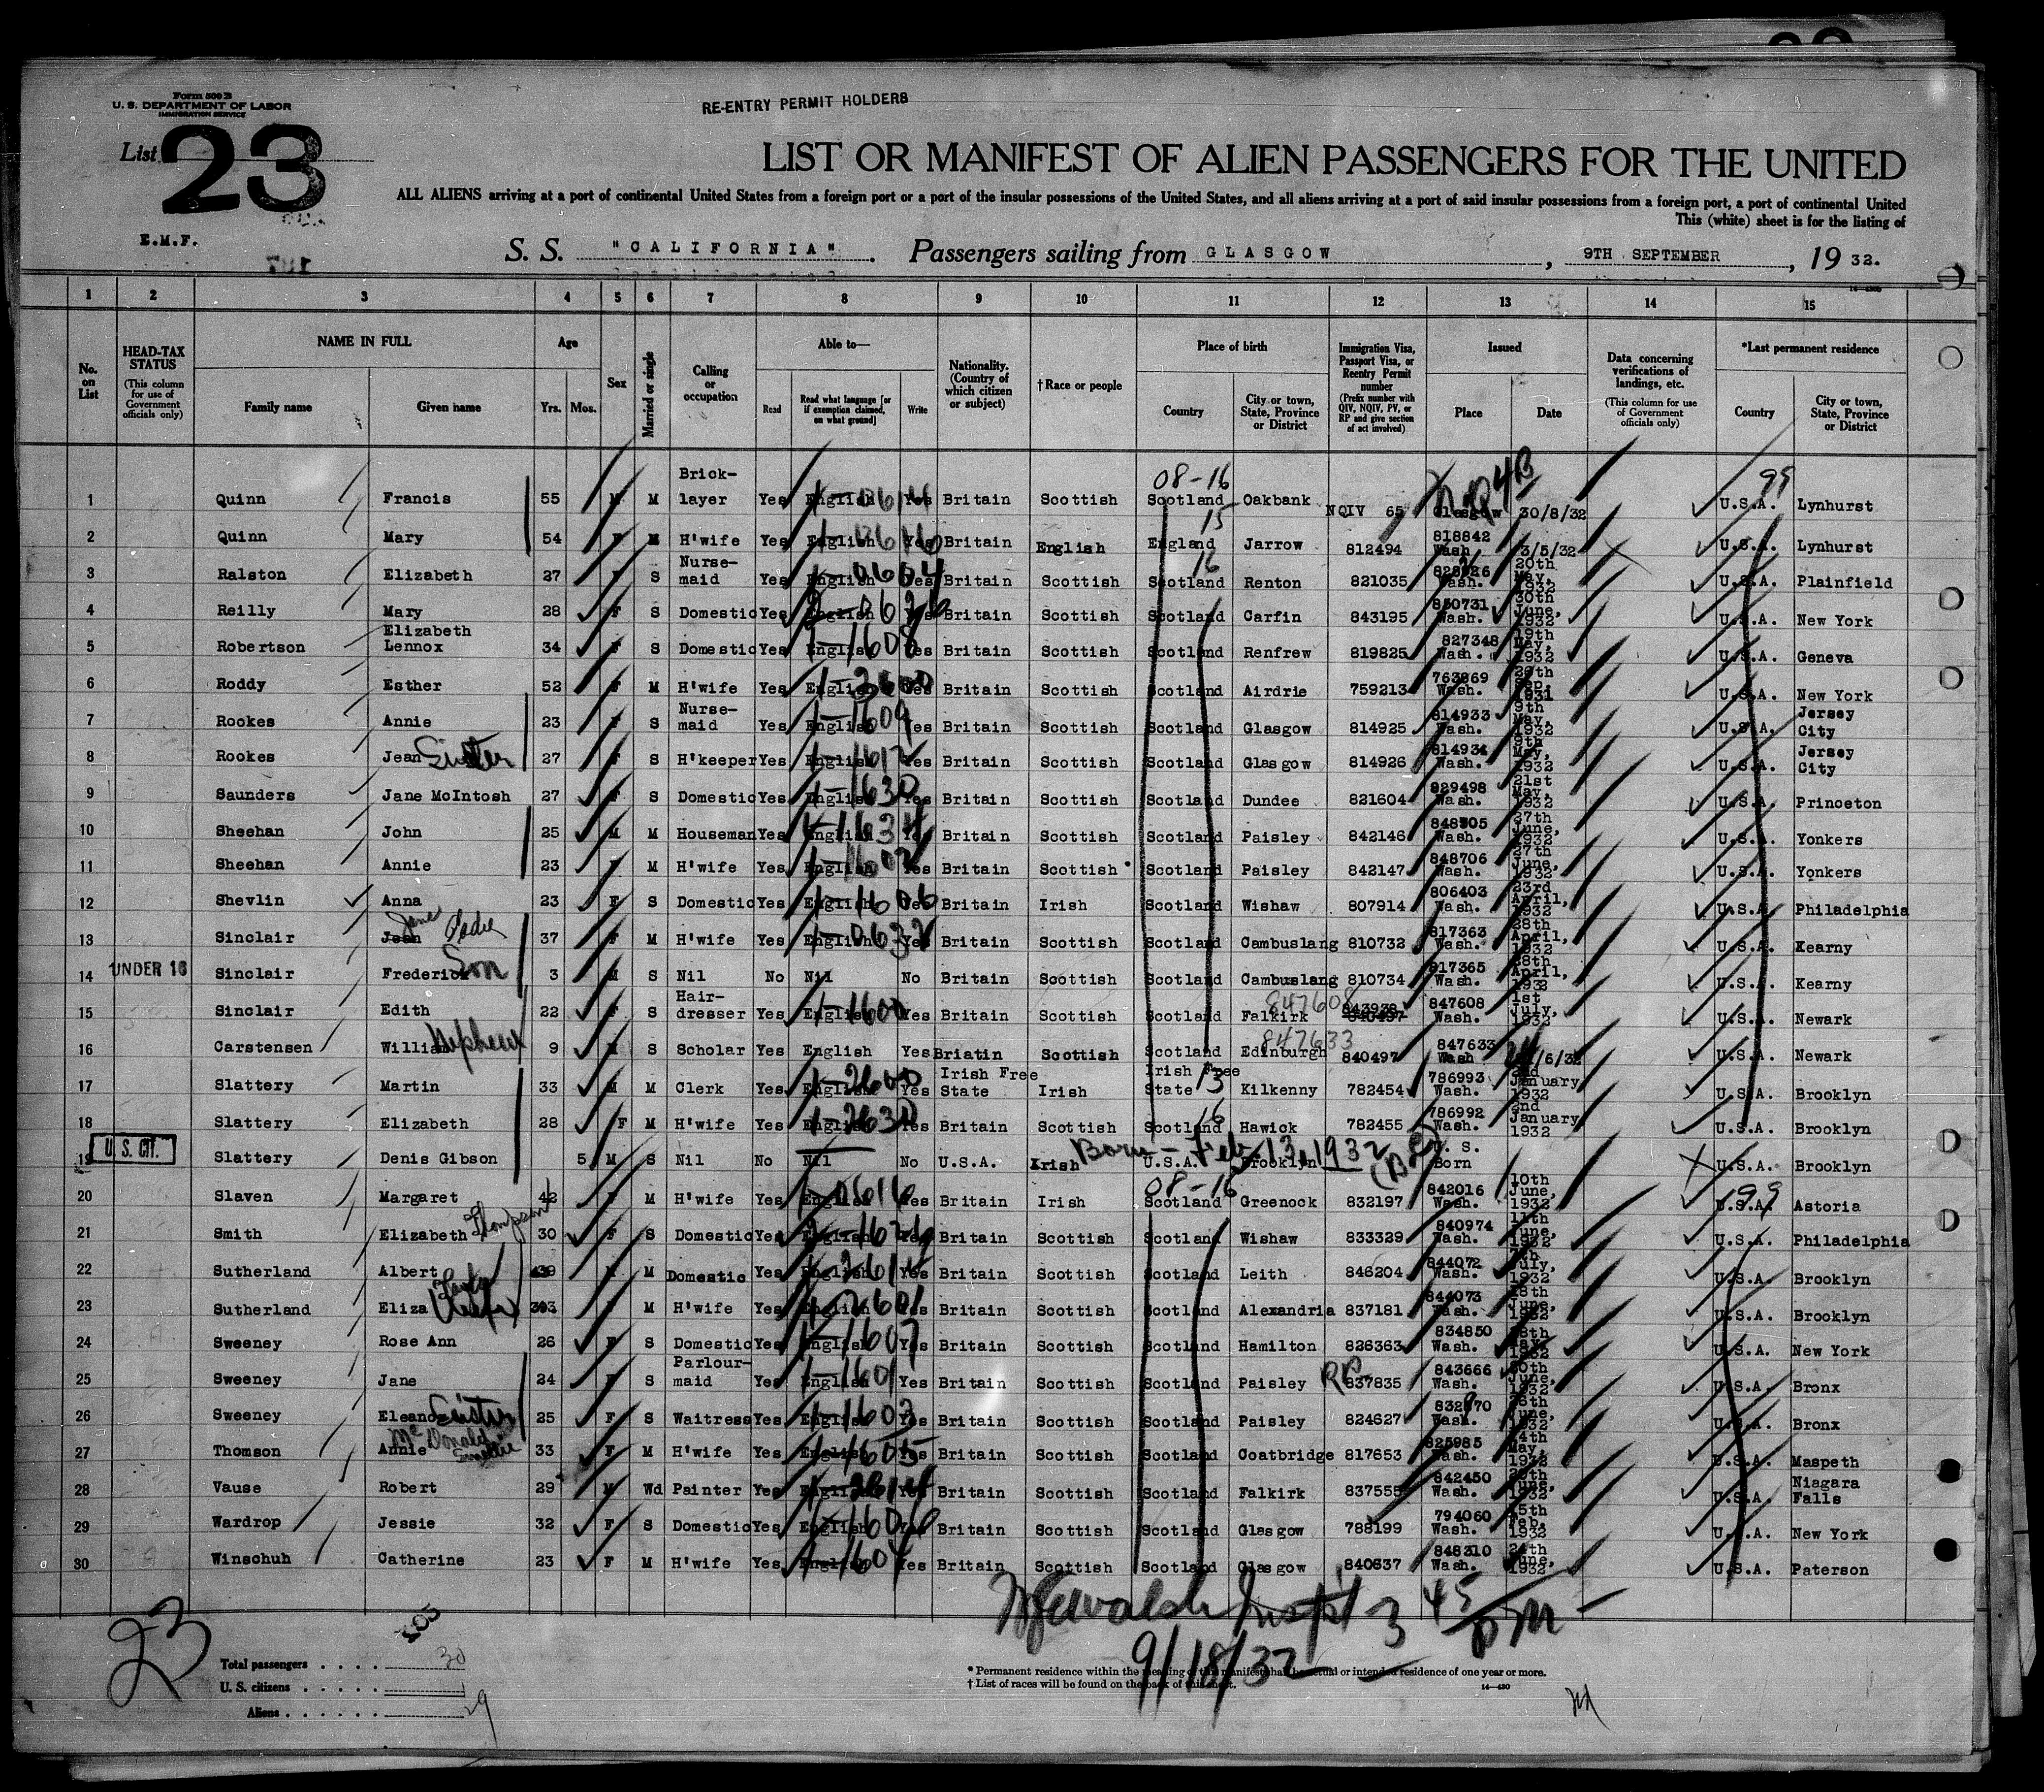 Form 500 B
U. S. DEPARTMENT OF LABOR
IMMIGRATION SERVICE
RE-ENTRY PERMIT HOLDERS
List 23
LIST OR MANIFEST OF ALIEN PASSENGERS FOR THE UNITED
ALL ALIENS arriving at a port of continental United States from a foreign port or a port of the insular possessions of the United States, and all aliens arriving at a port of said insular possessions from a foreign port, a port of continental United
This (white) sheet is for the listing of
E.M.F.
S. S. "CALIFORNIA". Passengers sailing from GLASGOW, 9TH SEPTEMBER, 19 32.
1 2 3 4 5 6 7 8 9 10 11 12 13 14 15
No. on List
HEAD-TAX STATUS (This column for use of Government officials only)
NAME IN FULL Family name Given name
Age Yrs. Mos.
Sex
Married or single
Calling or occupation
Able to— Read Read what language [or if exemption claimed, on what ground] Write
Nationality. (Country of which citizen or subject)
†Race or people
Place of birth Country City or town, State, Province or District
Immigration Visa, Passport Visa, or Reentry Permit number (Prefix number with QIV, NQIV, PV, or RP and give section of act involved)
Issued Place Date
Data concerning verifications of landings, etc. (This column for use of Government officials only)
*Last permanent residence Country City or town, State, Province or District
1 Quinn Francis 55 M M Brick-layer Yes English Yes Britain Scottish 08-16 Scotland Oakbank NQIV 65 Glasgow 30/8/32 99 U.S.A. Lynhurst
2 Quinn Mary 54 F M H'wife Yes English Yes Britain English 15 England Jarrow 812494 818842 Wash. 3/5/32 U.S.A. Lynhurst
3 Ralston Elizabeth 27 F S Nurse-maid Yes English Yes Britain Scottish 16 Scotland Renton 821035 Wash. 20th May, 1932 U.S.A. Plainfield
4 Reilly Mary 28 F S Domestic Yes English Yes Britain Scottish Scotland Carfin 843195 850731 Wash. 30th June, 1932 U.S.A. New York
5 Robertson Elizabeth Lennox 34 F S Domestic Yes English Yes Britain Scottish Scotland Renfrew 819825 827348 Wash. 19th May, 1932 U.S.A. Geneva
6 Roddy Esther 52 F M H'wife Yes English Yes Britain Scottish Scotland Airdrie 759213 763869 Wash. Sep. 1931 U.S.A. New York
7 Rookes Annie 23 F S Nurse-maid Yes English Yes Britain Scottish Scotland Glasgow 814925 814933 Wash. 9th May, 1932 U.S.A. Jersey City
8 Rookes Jean Sister 27 F S H'keeper Yes English Yes Britain Scottish Scotland Glasgow 814926 814934 Wash. 9th May, 1932 U.S.A. Jersey City
9 Saunders Jane McIntosh 27 F S Domestic Yes English Yes Britain Scottish Scotland Dundee 821604 829498 Wash. 21st May, 1932 U.S.A. Princeton
10 Sheehan John 25 M M Houseman Yes English Yes Britain Scottish Scotland Paisley 842146 848705 Wash. 27th June, 1932 U.S.A. Yonkers
11 Sheehan Annie 23 F M H'wife Yes English Yes Britain Scottish Scotland Paisley 842147 848706 Wash. 27th June, 1932 U.S.A. Yonkers
12 Shevlin Anna 23 F S Domestic Yes English Yes Britain Irish Scotland Wishaw 807914 806403 Wash. 23rd April, 1932 U.S.A. Philadelphia
13 Sinclair Jean Jane 37 F M H'wife Yes English Yes Britain Scottish Scotland Cambuslang 810732 817363 Wash. 28th April, 1932 U.S.A. Kearny
14 UNDER 16 Sinclair Frederick Son 3 M S Nil No Nil No Britain Scottish Scotland Cambuslang 810734 817365 Wash. 28th April, 1932 U.S.A. Kearny
15 Sinclair Edith 22 F S Hair-dresser Yes English Yes Britain Scottish Scotland Falkirk 847608 847608 Wash. 1st July, 1932 U.S.A. Newark
16 Carstensen William Nephew 9 M S Scholar Yes English Yes Briatin Scottish Scotland Edinburgh 847633 840497 847633 Wash U.S.A. Newark
17 Slattery Martin 33 M M Clerk Yes English Yes Irish Free State Irish Irish Free State 13 Kilkenny 782454 786993 Wash. 2nd January 1932 U.S.A. Brooklyn
18 Slattery Elizabeth 28 F M H'wife Yes English Yes Britain Scottish 16 Scotland Hawick 782455 786992 Wash. 2nd January 1932 U.S.A. Brooklyn
19 U. S. CIT. Slattery Denis Gibson 5 M S Nil No Nil No U.S.A. Irish Born - Feb 13, 1932 U.S.A. Brooklyn U. S. Born U.S.A. Brooklyn
20 Slaven Margaret 42 F M H'wife Yes English Yes Britain Irish 08-16 Scotland Greenock 832197 842016 Wash. 10th June, 1932 99 U.S.A. Astoria
21 Smith Elizabeth Thompson 30 F S Domestic Yes English Yes Britain Scottish Scotland Wishaw 833329 840974 Wash. 11th June, 1932 U.S.A. Philadelphia
22 Sutherland Albert 39 M M Domestic Yes English Yes Britain Scottish Scotland Leith 846204 844072 Wash. 7th July, 1932 U.S.A. Brooklyn
23 Sutherland Eliza F M H'wife Yes English Yes Britain Scottish Scotland Alexandria 837181 844073 Wash. 18th June, 1932 U.S.A. Brooklyn
24 Sweeney Rose Ann 26 F S Domestic Yes English Yes Britain Scottish Scotland Hamilton 826363 834850 Wash. 28th May, 1932 U.S.A. New York
25 Sweeney Jane 24 F S Parlour-maid Yes English Yes Britain Scottish Scotland Paisley RP 837835 843666 Wash. 20th June, 1932 U.S.A. Bronx
26 Sweeney Eleanor Sister 25 F S Waitress Yes English Yes Britain Scottish Scotland Paisley 824627 Wash. June, 1932 U.S.A. Bronx
27 Thomson Annie McDonald 33 F M H'wife Yes English Yes Britain Scottish Scotland Coatbridge 817653 825985 Wash. May, 1932 U.S.A. Maspeth
28 Vause Robert 29 M Wd Painter Yes English Yes Britain Scottish Scotland Falkirk 837555 842450 Wash. 20th June, 1932 U.S.A. Niagara Falls
29 Wardrop Jessie 32 F S Domestic Yes English Yes Britain Scottish Scotland Glasgow 788199 794060 Wash. 15th Feb. 1932 U.S.A. New York
30 Winschuh Catherine 23 F M H'wife Yes English Yes Britain Scottish Scotland Glasgow 840637 848310 Wash. 24th June, 1932 U.S.A. Paterson
Walsh Inspt 3 45 PM
9/18/32
23
Total passengers . . . . 30
U. S. citizens . . . . . 1
Aliens . . . . . . 29
* Permanent residence within the meaning of this manifest shall be actual or intended residence of one year or more.
† List of races will be found on the back of this sheet.
14—430